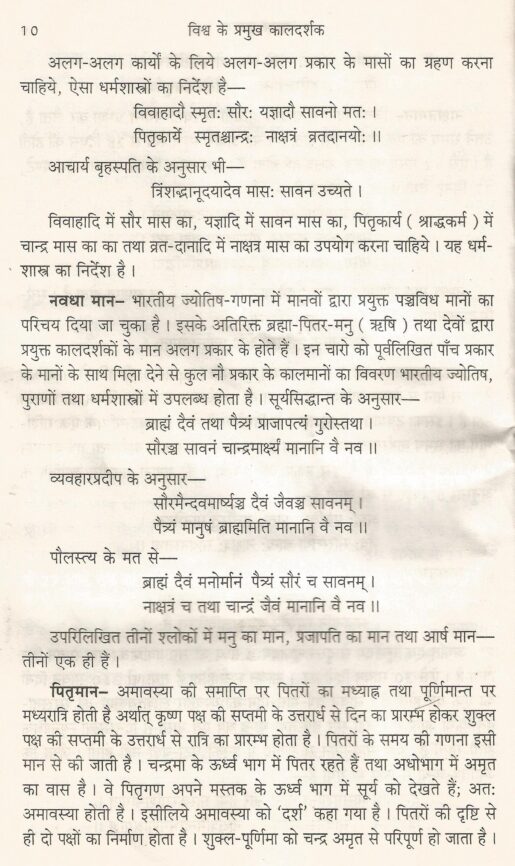 10 विश्व के प्रमुख कालदर्शक
अलग-अलग कार्यों के लिये अलग-अलग प्रकार के मासों का ग्रहण करना
चाहिये, ऐसा धर्मशास्त्रों का निर्देश है—
विवाहादौ स्मृतः सौरः यज्ञादौ सावनो मतः ।
पितृकार्ये स्मृतश्चान्द्रः नाक्षत्रं व्रतदानयोः ॥
आचार्य बृहस्पति के अनुसार भी—
त्रिंशद्भानूदयादेव मासः सावन उच्यते ।
विवाहादि में सौर मास का, यज्ञादि में सावन मास का, पितृकार्य ( श्राद्धकर्म ) में
चान्द्र मास का का तथा व्रत-दानादि में नाक्षत्र मास का उपयोग करना चाहिये । यह धर्म-
शास्त्र का निर्देश है ।
नवधा मान– भारतीय ज्योतिष-गणना में मानवों द्वारा प्रयुक्त पञ्चविध मानों का
परिचय दिया जा चुका है । इसके अतिरिक्त ब्रह्मा-पितर-मनु ( ऋषि ) तथा देवों द्वारा
प्रयुक्त कालदर्शकों के मान अलग प्रकार के होते हैं । इन चारो को पूर्वलिखित पाँच प्रकार
के मानों के साथ मिला देने से कुल नौ प्रकार के कालमानों का विवरण भारतीय ज्योतिष,
पुराणों तथा धर्मशास्त्रों में उपलब्ध होता है । सूर्यसिद्धान्त के अनुसार—
ब्राह्मं दैवं तथा पैत्र्यं प्राजापत्यं गुरोस्तथा ।
सौरञ्च सावनं चान्द्रमार्क्ष्यं मानानि वै नव ॥
व्यवहारप्रदीप के अनुसार—
सौरमैन्दवमार्ष्यञ्च दैवं जैवञ्च सावनम् ।
पैत्र्यं मानुषं ब्राह्ममिति मानानि वै नव ॥
पौलस्त्य के मत से—
ब्राह्मं दैवं मनोर्मानं पैत्र्यं सौरं च सावनम् ।
नाक्षत्रं च तथा चान्द्रं जैवं मानानि वै नव ॥
उपरिलिखित तीनों श्लोकों में मनु का मान, प्रजापति का मान तथा आर्ष मान—
तीनों एक ही हैं ।
पितृमान– अमावस्या की समाप्ति पर पितरों का मध्याह्न तथा पूर्णिमान्त पर
मध्यरात्रि होती है अर्थात् कृष्ण पक्ष की सप्तमी के उत्तरार्ध से दिन का प्रारम्भ होकर शुक्ल
पक्ष की सप्तमी के उत्तरार्ध से रात्रि का प्रारम्भ होता है । पितरों के समय की गणना इसी
मान से की जाती है । चन्द्रमा के ऊर्ध्व भाग में पितर रहते हैं तथा अधोभाग में अमृत
का वास है । वे पितृगण अपने मस्तक के ऊर्ध्व भाग में सूर्य को देखते हैं; अतः
अमावस्या होती है । इसीलिये अमावस्या को ‘दर्श’ कहा गया है । पितरों की दृष्टि से
ही दो पक्षों का निर्माण होता है । शुक्ल-पूर्णिमा को चन्द्र अमृत से परिपूर्ण हो जाता है ।